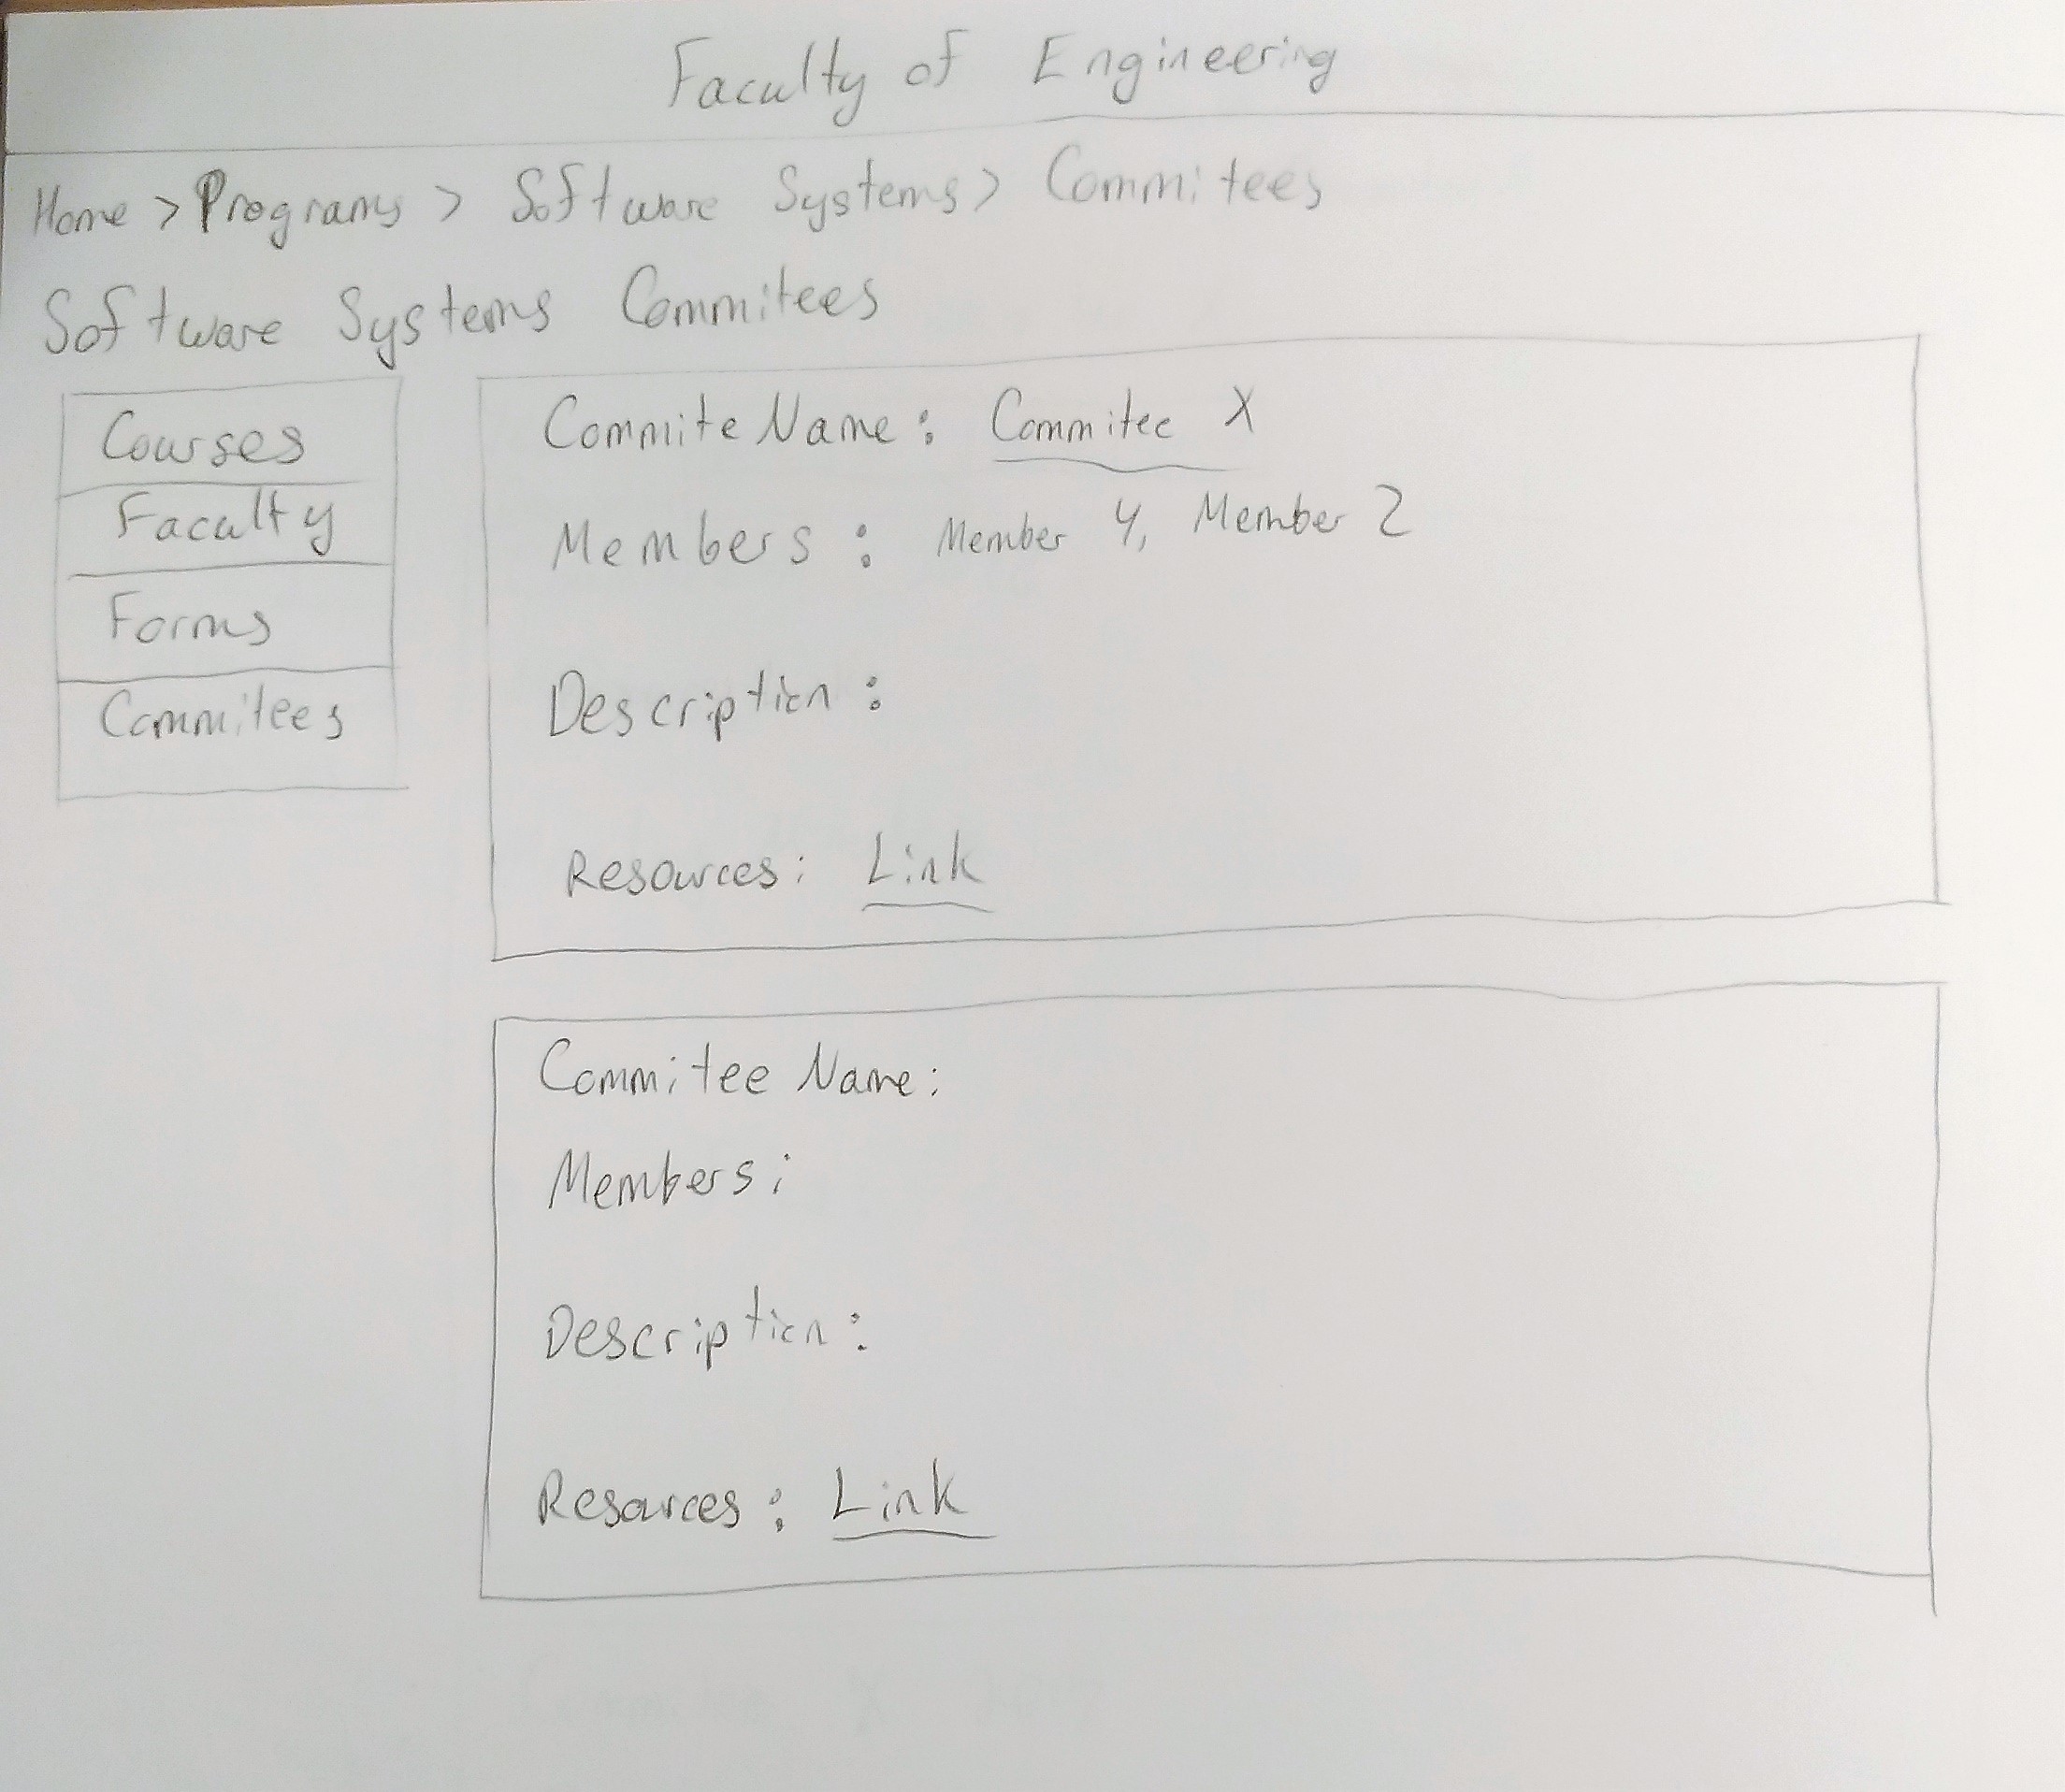 Faculty of Engineering
Home > Programs > Software Systems > Commitees
Software Systems Commitees
Courses
Faculty
Forms
Commitees
Commite Name: Commitee X
Members: Member Y, Member Z
Description:
Resources: Link
Commitee Name:
Members:
Description:
Resources: Link